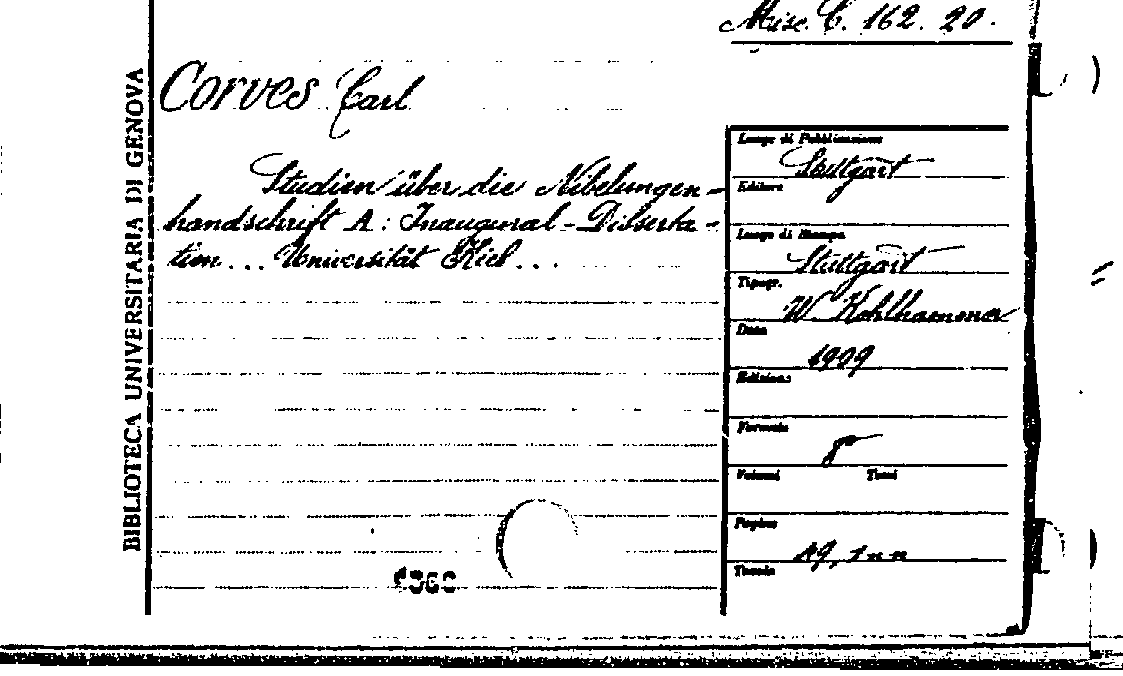 Misc. C. 162. 20.
BIBLIOTECA UNIVERSITARIA DI GENOVA
Corves Carl
Studien über die Nibelungen-
handschrift A: Inaugural-Disserta-
tion... Universität Kiel...
Luogo di Pubblicazione
Stuttgart
Editore
Luogo di Stampa
Stuttgart
Tipogr.
W. Kohlhammer
Data
1909
Edizione
Formato
8°
Volumi Tomi
Pagine
49, 1 n n
Tavole